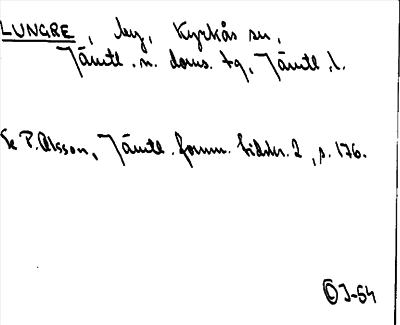 LUNGRE, by, Kyrkås sn,
Jämtl. n. doms. tg, Jämtl. l.
Se P. Olsson, Jämtl. fornm. tidskr. 2, s. 176.
ÖJ-54